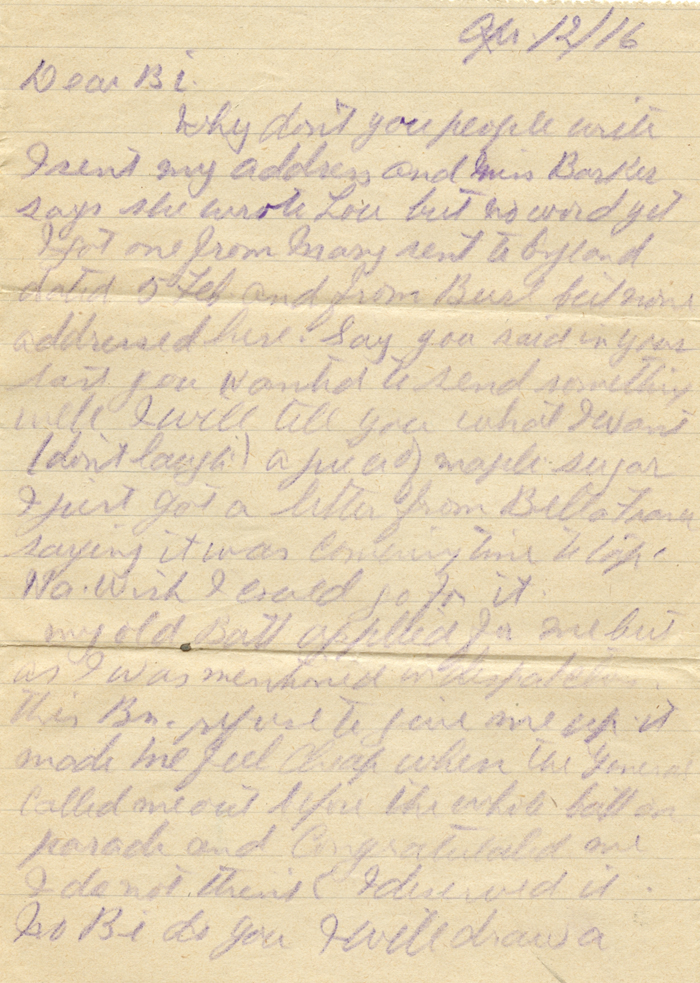 Apr. 12/16
Dear Bi.
Why don't you people write
I sent my address and Miss Barker
says she wrote Lou but no word yet
I got one from Mary sent to
dated 5 Feb and from Burt but none
addressed here. Say you said in your
last you wanted to send something
well I will tell you what I want
(don't laugh!) a piece of maple sugar
I just got a letter from Bella
saying it was coming time to tap.
Wish I could go for it.
my old Batt applied for me but
as I was mentioned in despatches.
this Bn. refuse to give me up. it
made me feel cheap when the General
called me out before the whole batt on
parade and Congratulated me
I do not think I deserved it.
Bi do you I will draw a